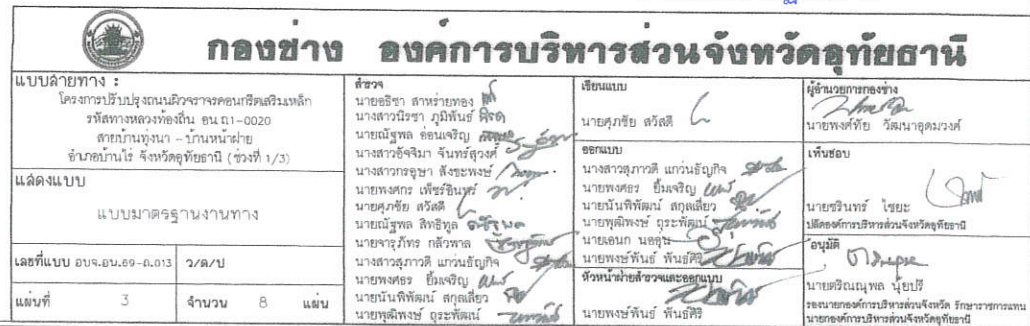 กองช่าง องค์การบริหารส่วนจังหวัดอุทัยธานี
แบบสายทาง :
โครงการปรับปรุงถนนผิวจราจรคอนกรีตเสริมเหล็ก
รหัสทางหลวงท้องถิ่น อน ถ1-0020
สายบ้านทุ่งนา - บ้านหน้าฝาย
อำเภอบ้านไร่ จังหวัดอุทัยธานี (ช่วงที่ 1/3)
แสดงแบบ
แบบมาตรฐานงานทาง
เลขที่แบบ อบจ.อน.69-ถ.013 ว/ด/ป
แผ่นที่ 3 จำนวน 8 แผ่น
สำรวจ
นายอธิชา สาหร่ายทอง
นางสาวนิรชา ภูมิพันธ์
นายณัฐพล อ่อนเจริญ
นางสาวอัจจิมา จันทร์สุวงศ์
นางสาวกรอุษา สังขะพงษ์
นายพงศกร เพ็ชรอินทร์
นายศุภชัย สวัสดี
นายณัฐพล สิทธิทูล
นายจารุภัทร กลัวพาล
นางสาวสุภาวดี แกว่นธัญกิจ
นายพงศธร ยิ้มเจริญ
นายนันพิพัฒน์ สกุลเสี่ยว
นายพุฒิพงษ์ ถุระพัฒน์
เขียนแบบ
นายศุภชัย สวัสดี
ออกแบบ
นางสาวสุภาวดี แกว่นธัญกิจ
นายพงศธร ยิ้มเจริญ
นายนันพิพัฒน์ สกุลเสี่ยว
นายพุฒิพงษ์ ถุระพัฒน์
นายเอนก นออุ่น
นายพงษ์พันธ์ พันธ์ศิริ
หัวหน้าฝ่ายสำรวจและออกแบบ
นายพงษ์พันธ์ พันธ์ศิริ
ผู้อำนวยการกองช่าง
นายพงศ์ทัย วัฒนาอุดมวงศ์
เห็นชอบ
นายชรินทร์ ไชยะ
ปลัดองค์การบริหารส่วนจังหวัดอุทัยธานี
อนุมัติ
นายตริณณุพล นุ้ยปรี
รองนายกองค์การบริหารส่วนจังหวัด รักษาราชการแทน
นายกองค์การบริหารส่วนจังหวัดอุทัยธานี